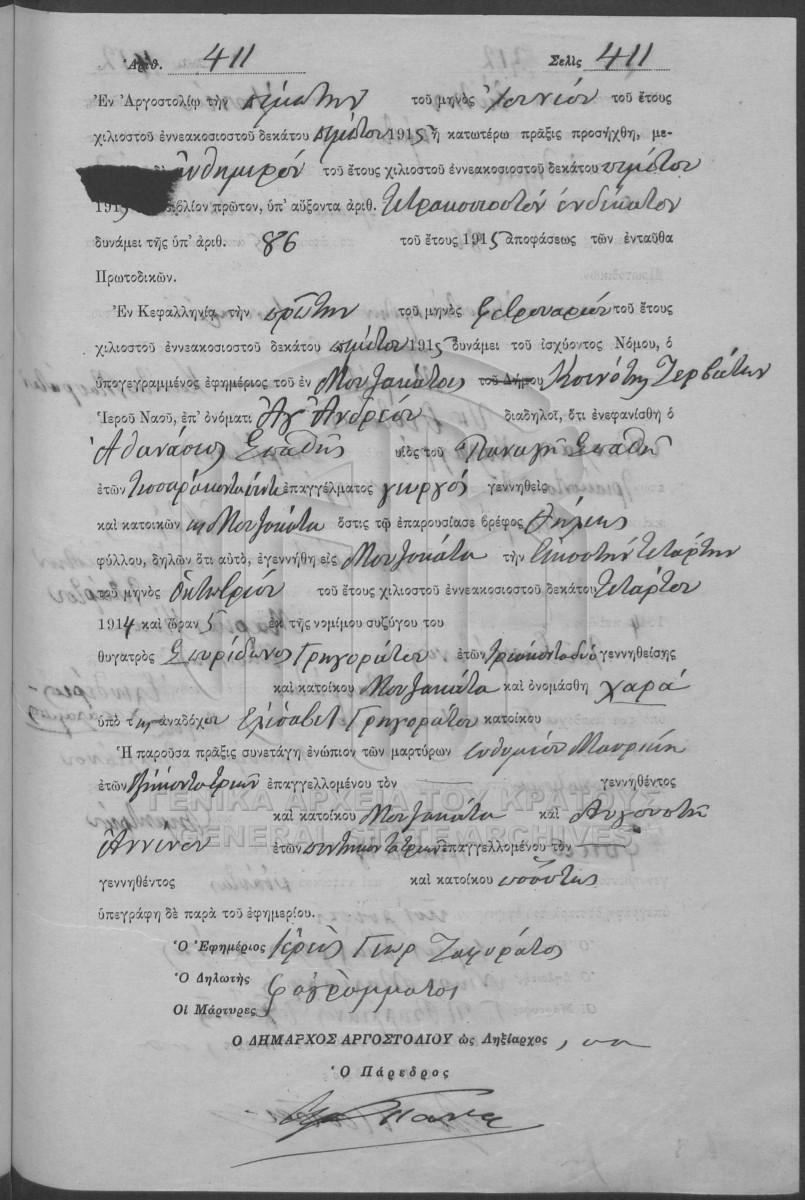 Ἀριθ. 411 Σελὶς 411
Ἐν Ἀργοστολίῳ τὴν πέμπτην τοῦ μηνὸς Ἰουνίου τοῦ ἔτους
χιλιοστοῦ ἐννεακοσιοστοῦ δεκάτου πέμπτου 1915 ἡ κατωτέρω πρᾶξις προσήχθη, με-
αὐθημερόν τοῦ ἔτους χιλιοστοῦ ἐννεακοσιοστοῦ δεκάτου πέμπτου
1915 βιβλίον πρῶτον, ὑπ' αὔξοντα ἀριθ. Τετρακοσιοστόν ἑνδέκατον
δυνάμει τῆς ὑπ' ἀριθ. 86 τοῦ ἔτους 1915 ἀποφάσεως τῶν ἐνταῦθα
Πρωτοδικῶν.
Ἐν Κεφαλληνίᾳ τὴν πρώτην τοῦ μηνὸς Φεβρουαρίου τοῦ ἔτους
χιλιοστοῦ ἐννεακοσιοστοῦ δεκάτου πέμπτου 1915 δυνάμει τοῦ ἰσχύοντος Νόμου, ὁ
ὑπογεγραμμένος ἐφημέριος τοῦ ἐν Μουζακάτοις τοῦ Δήμου Κοινότης Ζερβάτων
Ἱεροῦ Ναοῦ, ἐπ' ὀνόματι Ἁγ Ἀνδρέου διαδηλοῖ, ὅτι ἐνεφανίσθη ὁ
Ἀθανάσιος Σπαθῆς υἱὸς τοῦ Παναγῆ Σπαθῆ
ἐτῶν Τεσσαράκοντα πέντε ἐπαγγέλματος γεωργός γεννηθεὶς
καὶ κατοικῶν εἰς Μουζακάτα ὅστις τῷ ἐπαρουσίασε βρέφος θήλεος
φύλλου, δηλῶν ὅτι αὐτὸ, ἐγεννήθη εἰς Μουζακάτα τὴν Εἰκοστὴν τετάρτην
τοῦ μηνὸς Ὀκτωβρίου τοῦ ἔτους χιλιοστοῦ ἐννεακοσιοστοῦ δεκάτου Τετάρτου
1914 καὶ ὥραν 5 ἐκ τῆς νομίμου συζύγου του
θυγατρὸς Σπυρίδωνος Γρηγοράτου ἐτῶν τριάκοντα δύο γεννηθείσης
καὶ κατοίκου Μουζακάτα καὶ ὀνομάσθη χαρά
ὑπὸ τῆς ἀναδόχου Ελισάβετ Γρηγοράτου κατοίκου
Ἡ παροῦσα πρᾶξις συνετάγη ἐνώπιον τῶν μαρτύρων Εὐθυμίου Μαυρίκη
ἐτῶν ἑξήκοντα τριῶν ἐπαγγελλομένου τὸν — γεννηθέντος
καὶ κατοίκου Μουζακάτα καὶ Αὐγουστῆ
Ἀννίνου ἐτῶν πεντήκοντα τριῶν ἐπαγγελλομένου τὸν —
γεννηθέντος καὶ κατοίκου
ὑπεγράφη δὲ παρὰ τοῦ ἐφημερίου.
Ὁ Ἐφημέριος Ἱερεὺς Γεωρ
Ὁ Δηλωτὴς
Οἱ Μάρτυρες ἀγράμματοι
Ὁ ΔΗΜΑΡΧΟΣ ΑΡΓΟΣΤΟΛΙΟΥ ὡς Ληξίαρχος
Ὁ Πάρεδρος
ΓΕΝΙΚΑ ΑΡΧΕΙΑ ΤΟΥ ΚΡΑΤΟΥΣ
GENERAL STATE ARCHIVES